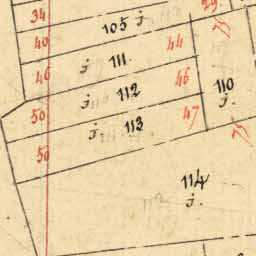 29
34
105 j
75
40
44
j 111.
46
46
110
j.
j 112
50
47
j 113
75
50
114
j.